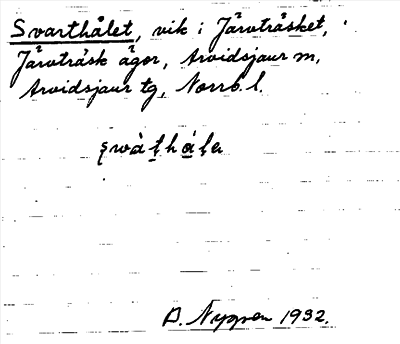 Svarthålet, vik i Järvträsket,
Järvträsk ägor, Arvidsjaur m,
Arvidsjaur tg, Norrb. l.
D. Nygren 1932.